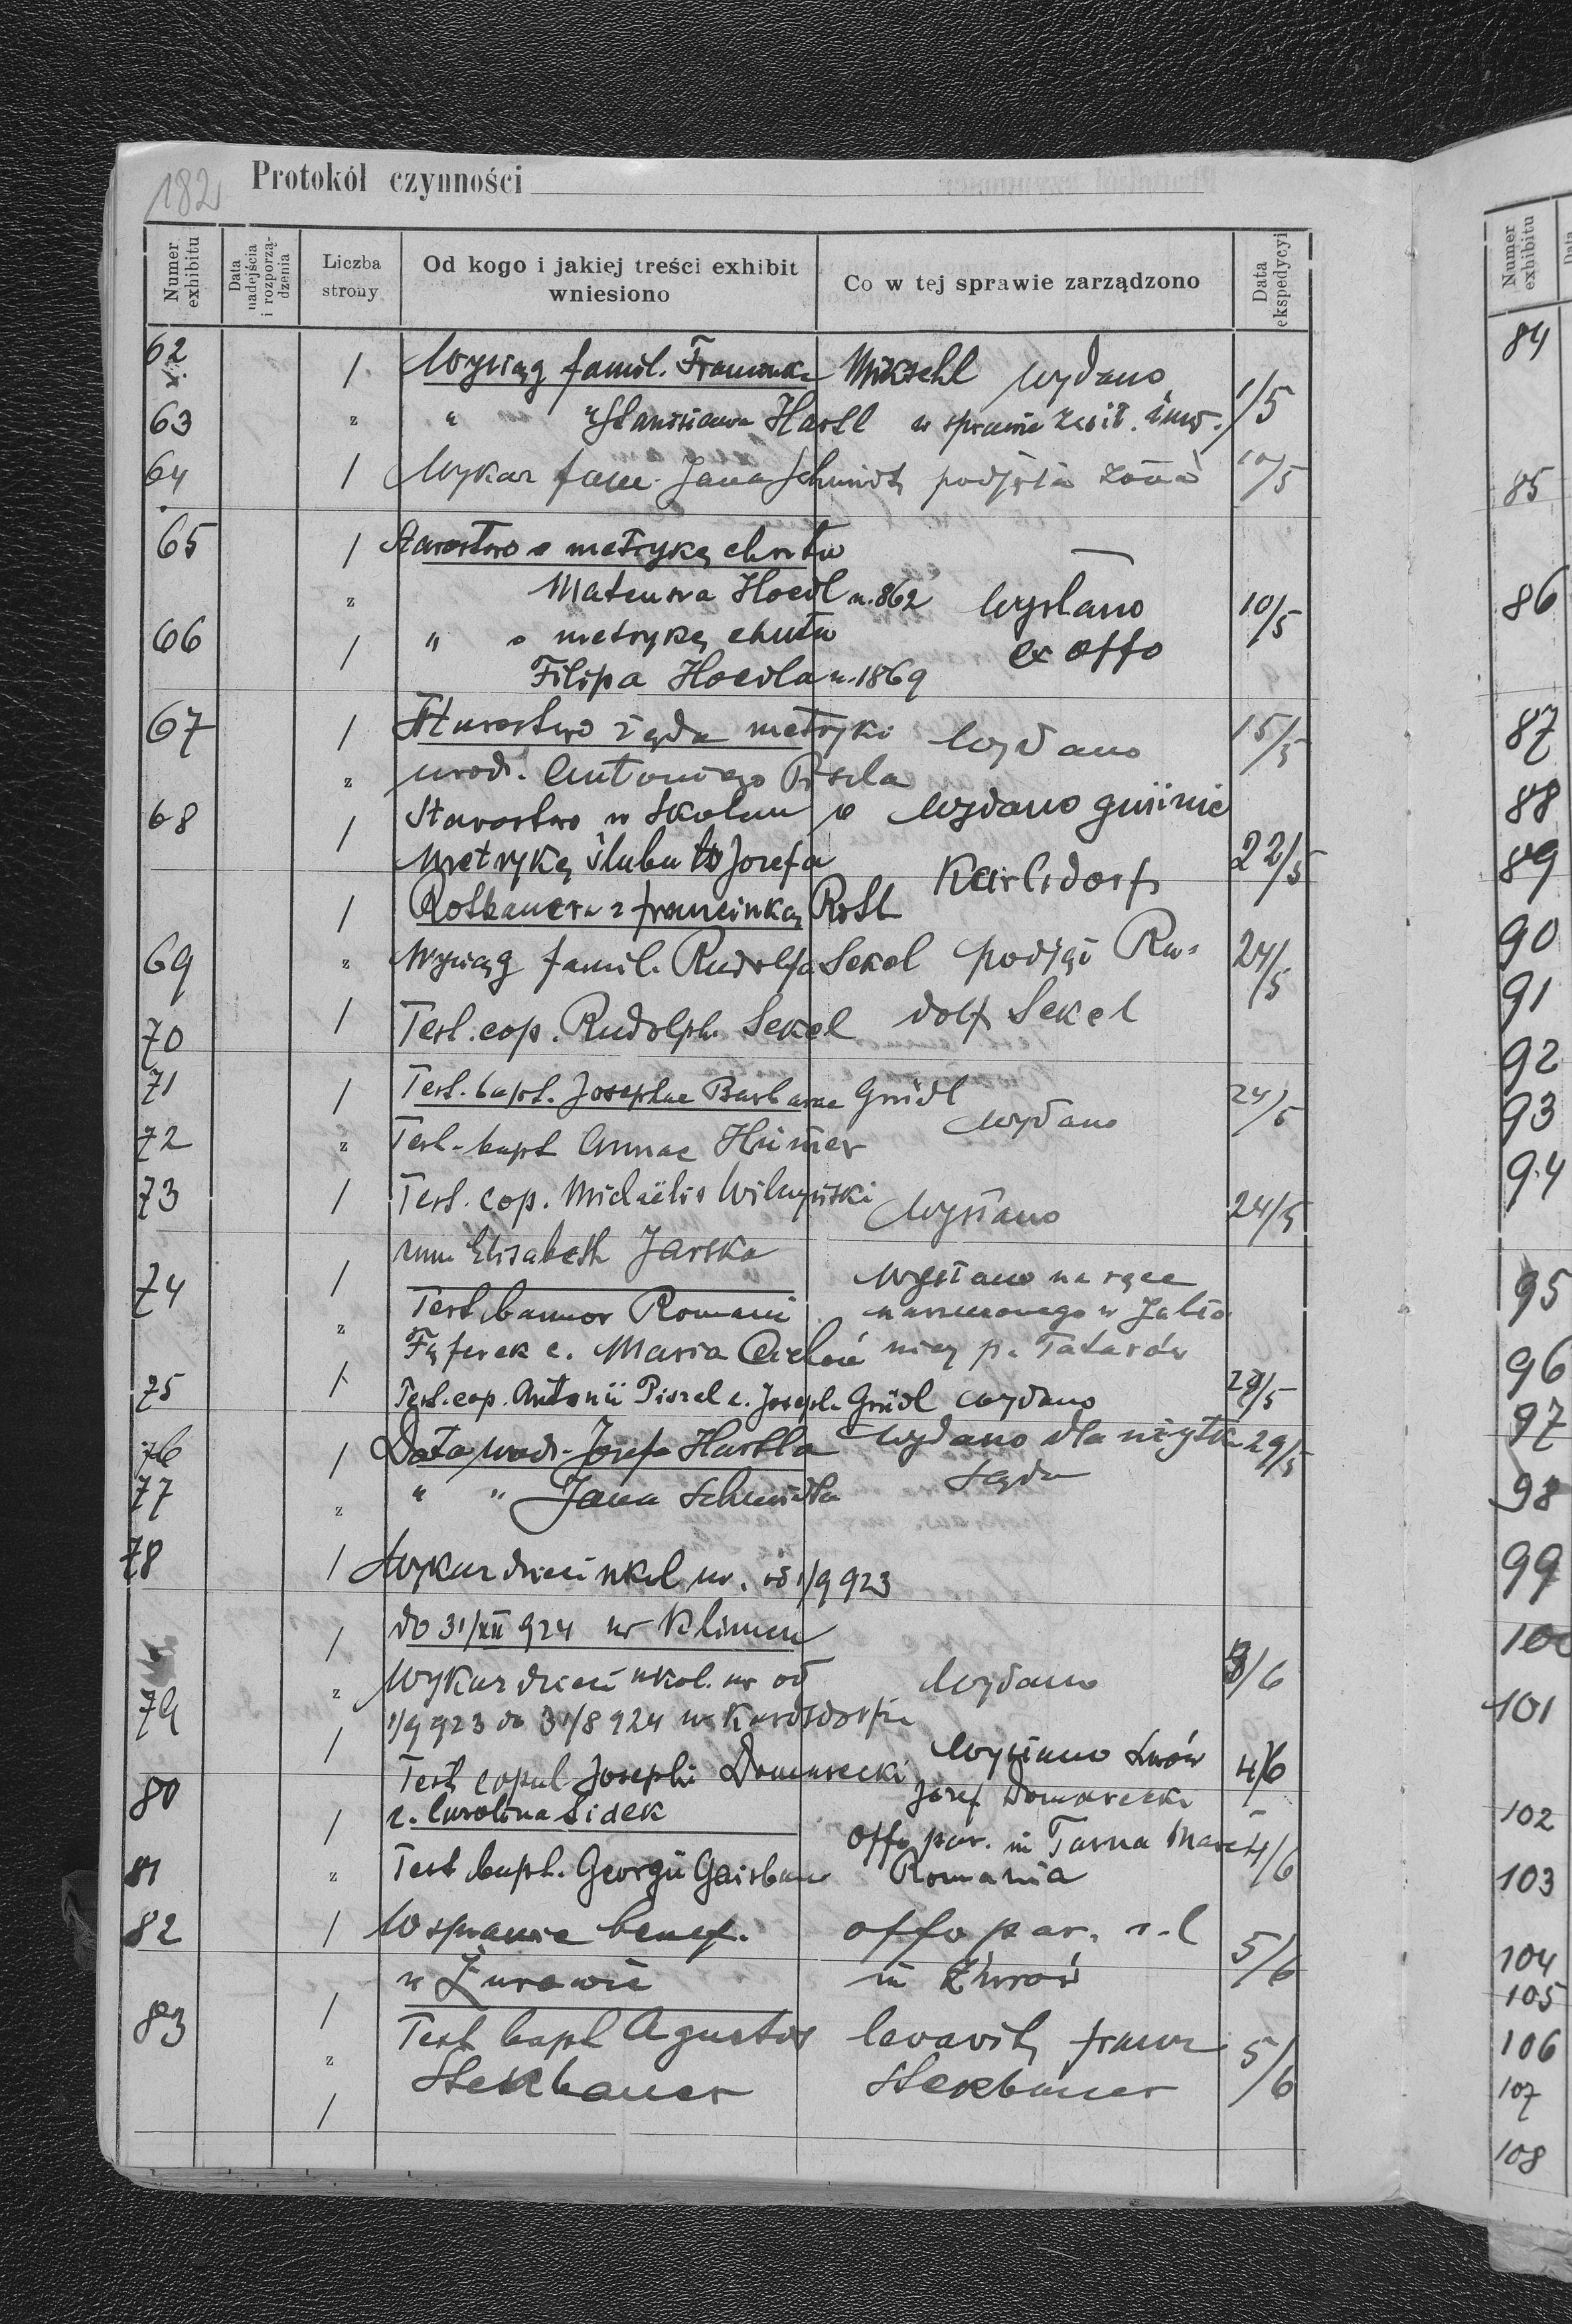 182 Protokół czynności
Numer exhibitu
Data nadejścia i rozporzą-dzenia
Liczba strony
Od kogo i jakiej treści exhibit wniesiono
Co w tej sprawie zarządzono
Data ekspedycyi
62 / Wyciąg famil. Franciszka Mikschl wydano 1/5
63 " " Stanisława Hartl w sprawie zasił. inw.
64 / Wykaz fam. Jana Schmidt podjęła żona 10/5
65 / Starostwo o metrykę chrztu
Mateusza Hoedl u. 862 wysłano 10/5
66 / " o metrykę chrztu ex offo
Filipa Hoedla u. 1869
67 / Starostwo żąda metryki wydano 15/5
urodz. Antoniego Piszla
68 / Starostwo w Skolem o wydano gminie
metrykę ślubu Józefa Karlsdorf 22/5
/ Rotbauera z Franciszką Rostl
69 Wyciąg famil. Rudolfa Sekel podjął Ru- 24/5
70 / Test. cop. Rudolph. Sekel dolf Sekel
71 / Test. bapt. Josephae Barbarae Gnidl 24/5
72 Test. bapt. Annae wydano
73 / Test. cop. Michaëlis Wilczyński wysłano 24/5
cum Elisabeth Jarska
74 / wysłano na ręce
Test. bannor Romani w Jabło
c. Maria nicy p. Tatarów
75 / Test. cop. Antonii Piszel c. Joseph. Gnidl wydano 28/5
76 / Data urodz. Józefa Hartla wydano dla użytku 29/5
77 " " Jana Schmidta sądu
78 / Wykaz dzieci szkol. ur. od 1/9 923
/ do 31/XII 924 w Klimcu
79 Wykaz dzieci szkol. ur od wydano 3/6
1/9 923 do 31/8 924 w Karlsdorfie
80 / Test. copul. Josephi Domarecki wysłano Lwów 4/6
c. Carolina Sidek Józef Domarecki
/ offo par. in Tarna Mare 4/6
81 Test. bapt. Georgii Gaisbauer Romania
82 / W sprawie benef. offo par. r. l 5/6
w Żurawie in Żurów
83 / Test bapt Agustos levavit Franz 5/6
Stekbauer Stekbauer
/
Numer exhibitu
Data
84
85
86
87
88
89
90
91
92
93
94
95
96
97
98
99
100
101
102
103
104
105
106
107
108